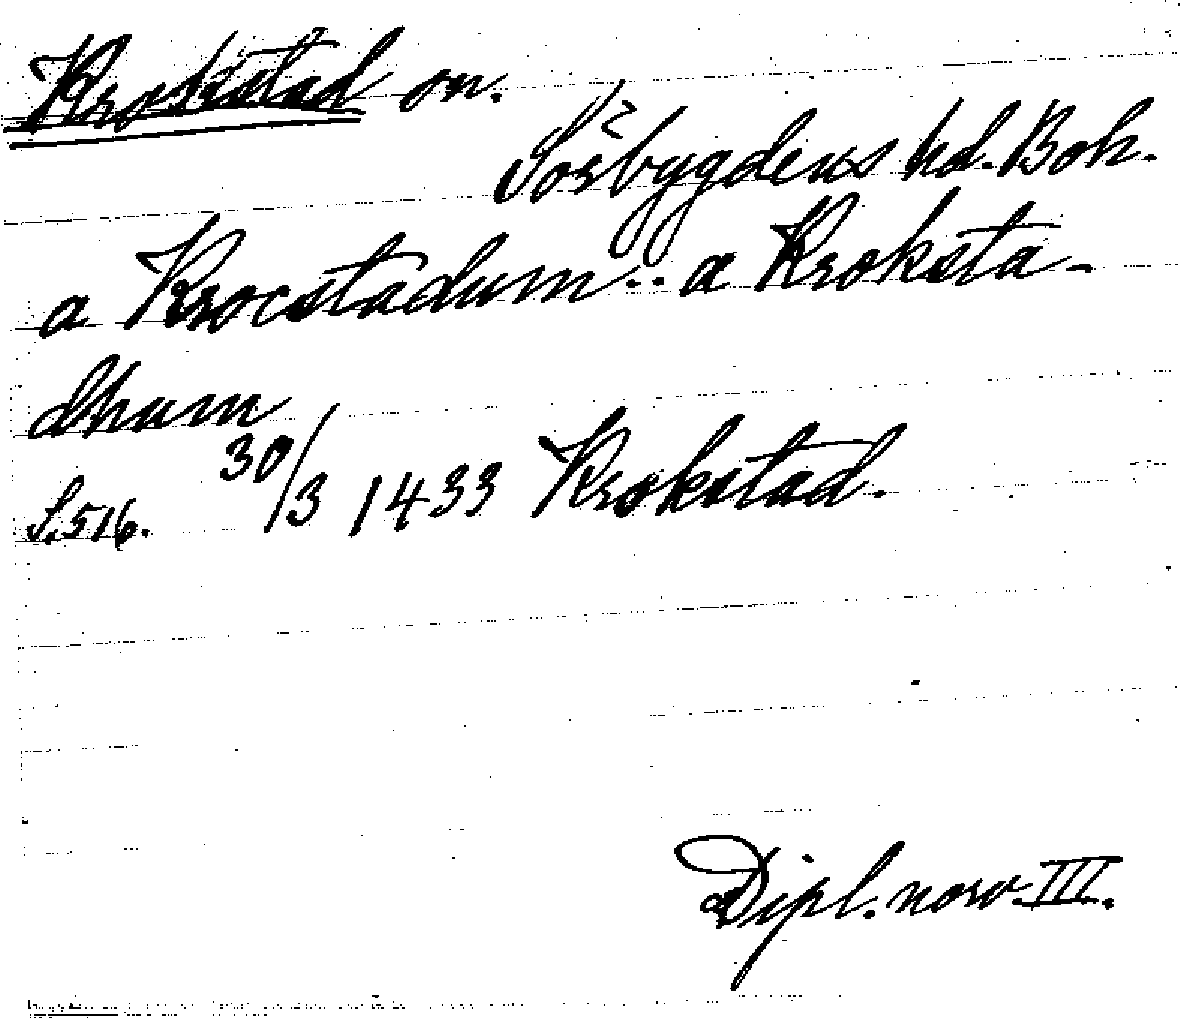 Krokstad on.
Sörbygdens hd. Boh.
a Krocstadum .. a Kroksta-
dhum
S. 516. 30/3 1433 Krokstad.
Dipl. norv. III.